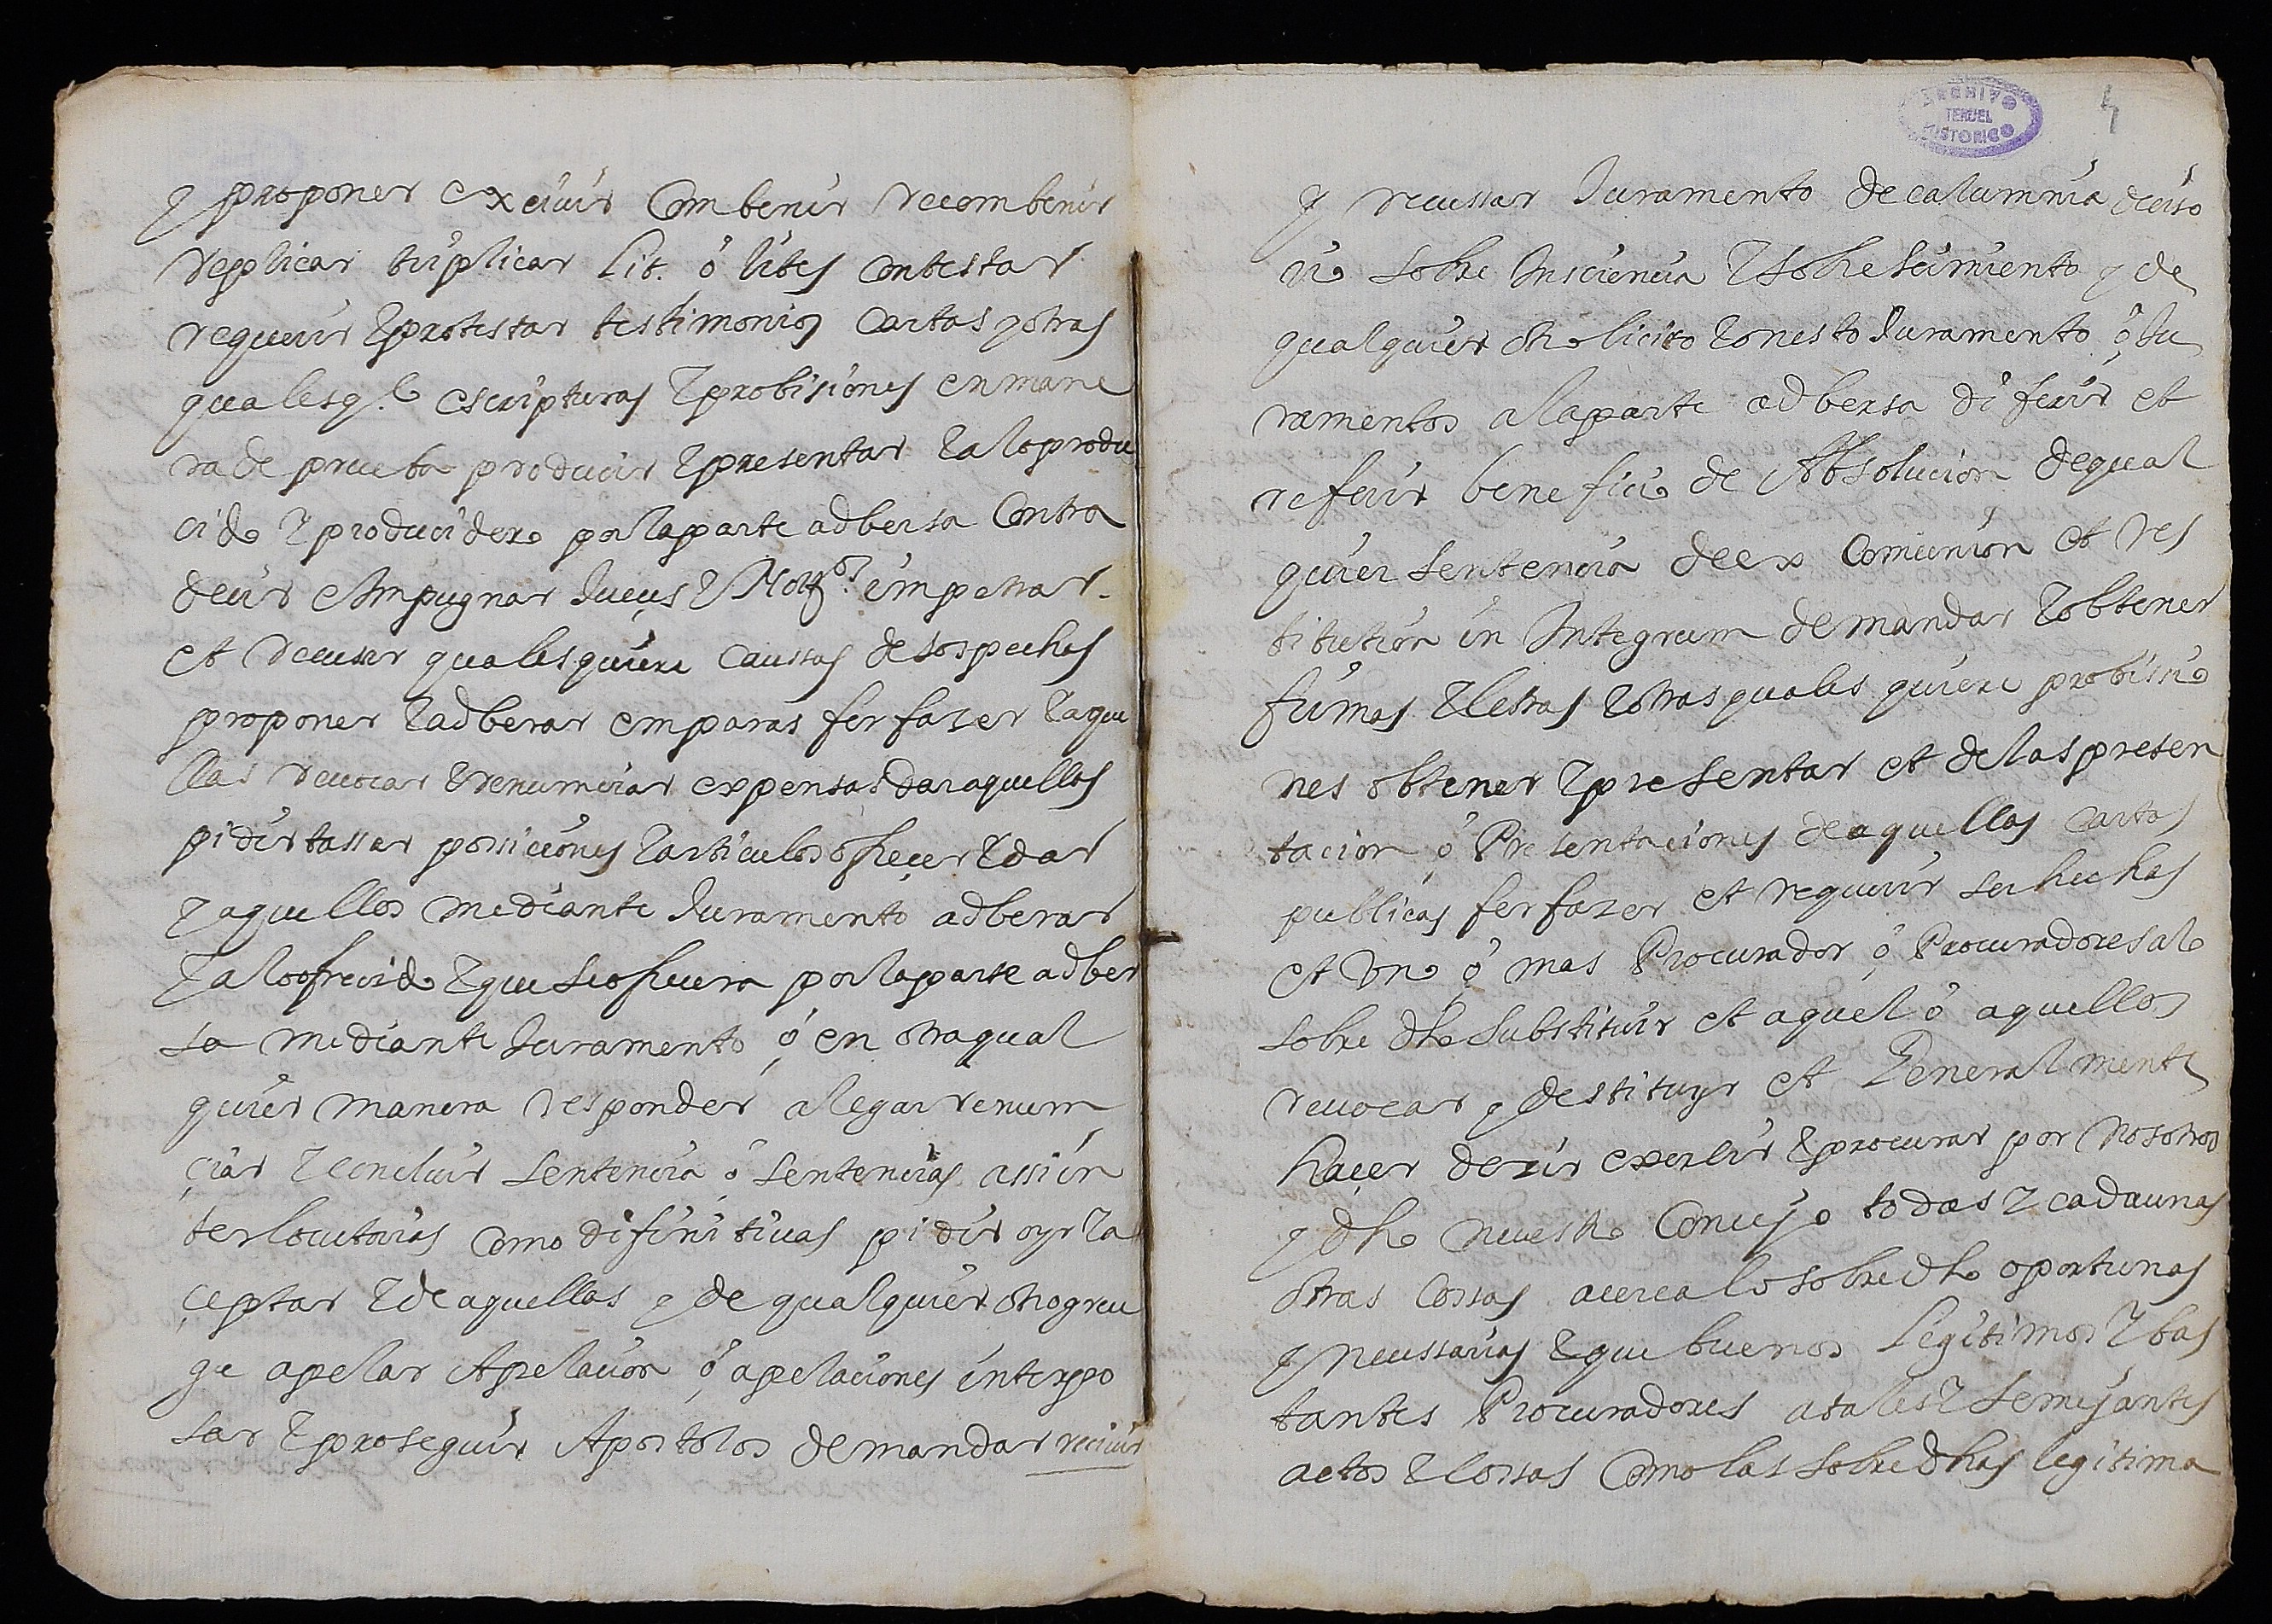 y proponer exciuir Combenir recombenir
replicar triplicar lit. ó lites contestar
requerir y protestar testimonios cartas y otras
qualesq.e escripturas y probisiones en mane
ra de prueba producir y presentar y a lo produ
cido y producidero por la parte adbersa Contra
decir e Impugnar Jueçes y Nott.os impetrar
et recusar qualesquiere caussas de sospechas
proponer y adberar emparas fer fazer y aque
llas reuocar y renunciar expensas dar aquellos
pidir tassar possiciones y articulos ofreçer y dar
y aquellos mediante Juramento adberar
y a lo ofrecido y que se ofrecera por la parte adber
sa mediante Juramento ó en otra qual
quier manera responder alegar renun
çiar y concluir sentencia ó sentencias assi in
terlocutorias como difinitiuas pidir oyr y a
çeptar y de aquellas y de qualquier otro greu
ge apelar Apelacion ó apelaciones interpo
sar y proseguir Apostolos demandar reciuir
ARCHIVO
HISTORICO
TERUEL
4
y recussar Juramento de calumnia deciso
rio sobre Insciencia y sobreseimiento y de
qualquier otro licito y onesto Juramento ó Ju
ramentos a la parte adbersa diferir et
referir beneficio de Absolucion de qual
quier sentencia de ex Comunion et res
titution in Integrum demandar y obtener
firmas y letras y otras quales quiere probisio
nes obtener y presentar et de las presen
tacion ó Presentaciones de aquellas cartas
publicas fer fazer et requerir ser hechas
et vno ó mas Procurador ó Procuradores a lo
sobre dho substituir et aquel ó aquellos
reuocar y destituyr et Generalmente
haçer dezir exerçir y procurar por nosotros
y dho nuestro Conçejo todas y cada unas
otras cossas acerca lo sobredho oportunas
y necessarias y que buenos legitimos y bas
tantes Procuradores a tales y semejantes
actos y cossas como las sobredhas legitima